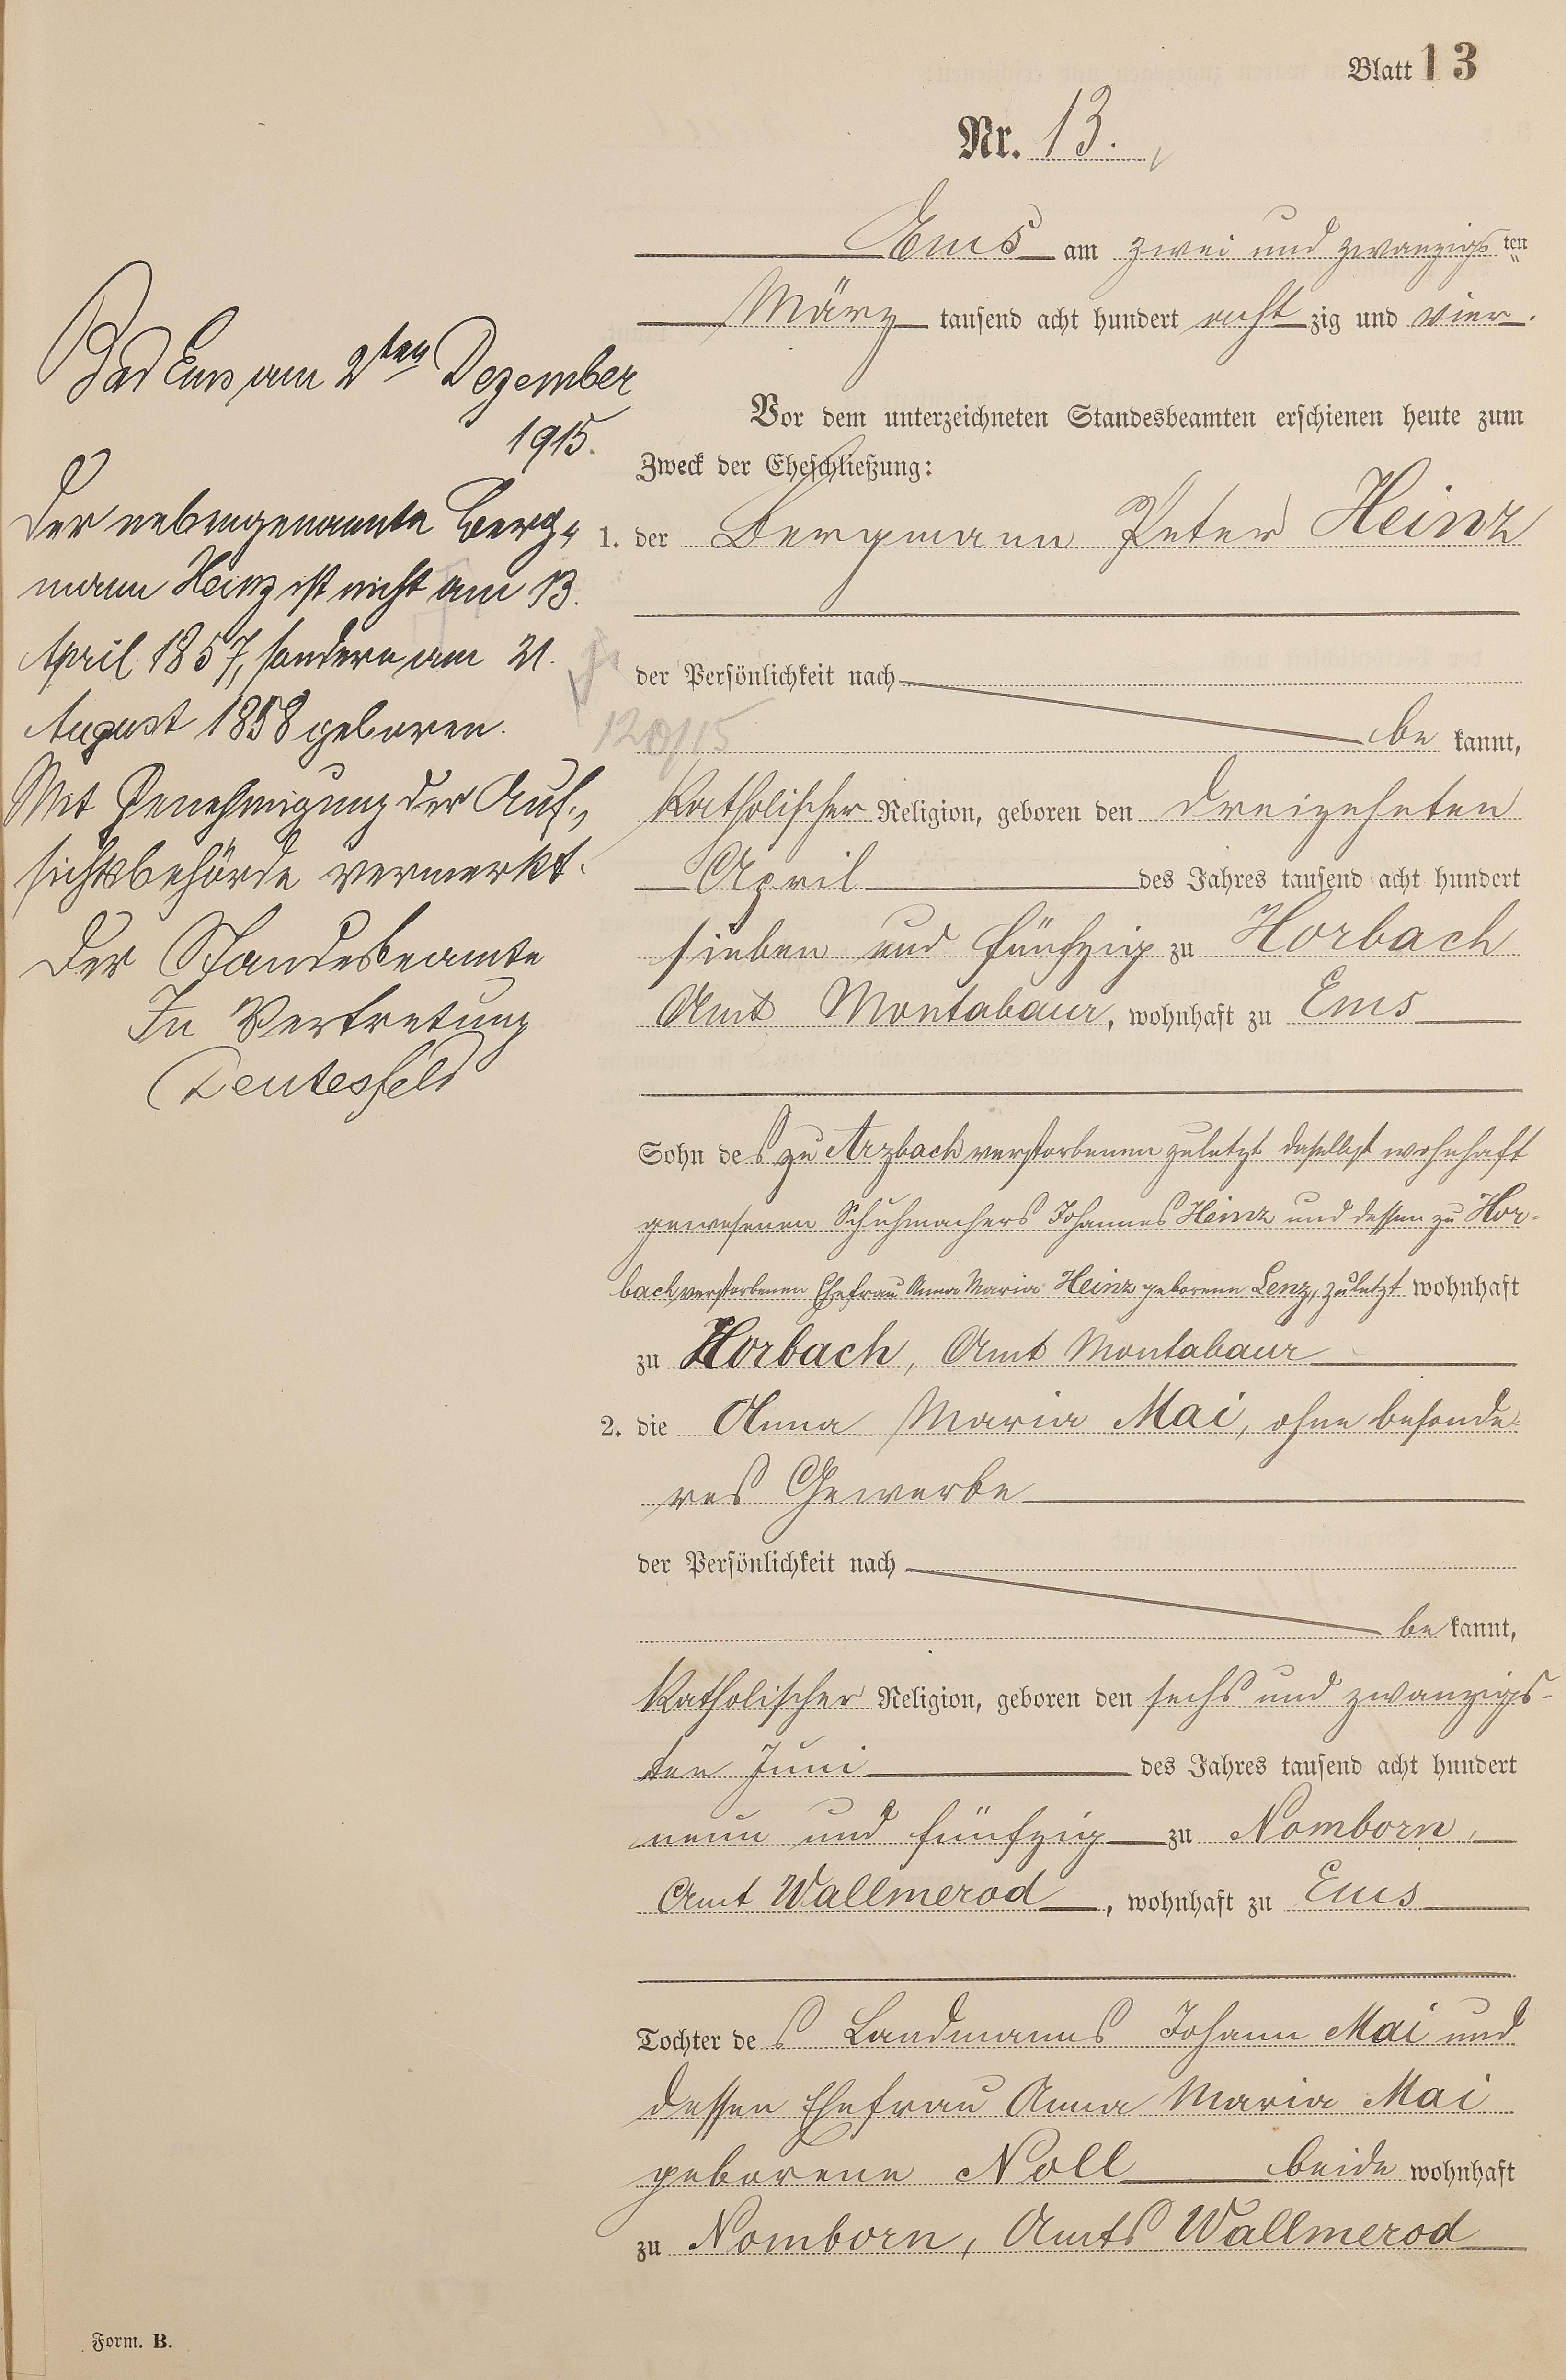 Blatt 13
Nr. 13.
Ems am zwei und zwanzigsten
März tausend acht hundert achtzig und vier.
Vor dem unterzeichneten Standesbeamten erschienen heute zum
Zweck der Eheschließung:
1. der Bergmann Peter Heinz
der Persönlichkeit nach
be kannt,
katholischer Religion, geboren den dreizehnten
April des Jahres tausend acht hundert
sieben und fünfzig zu Horbach
Amt Montabaur, wohnhaft zu Ems
Sohn des zu Arzbach verstorbenen zuletzt daselbst wohnhaft
gewesenen Schuhmachers Johannes Heinz und dessen zu Hor-
bach verstorbenen Ehefrau Anna Maria Heinz geborene Lenz, zuletzt wohnhaft
zu Horbach, Amt Montabaur
2. die Anna Maria Mai, ohne besonde-
res Gewerbe
der Persönlichkeit nach
be kannt,
katholischer Religion, geboren den sechs und zwanzigs-
ten Juni des Jahres tausend acht hundert
neun und fünfzig zu Nomborn,
Amt Wallmerod, wohnhaft zu Ems
Tochter des Landmanns Johann Mai und
dessen Ehefrau Anna Maria Mai
geborene Noll beide wohnhaft
zu Nomborn, Amts Wallmerod
Bad Ems am 2ten Dezember
1915.
Der nebengenannte Berg-
mann Heinz ist nicht am 13.
April 1857, sondern am 21.
August 1858 geboren.
Mit Genehmigung der Auf-
sichtsbehörde vermerkt.
Der Standesbeamte
In Vertretung
Deutesfeld
Form. B.